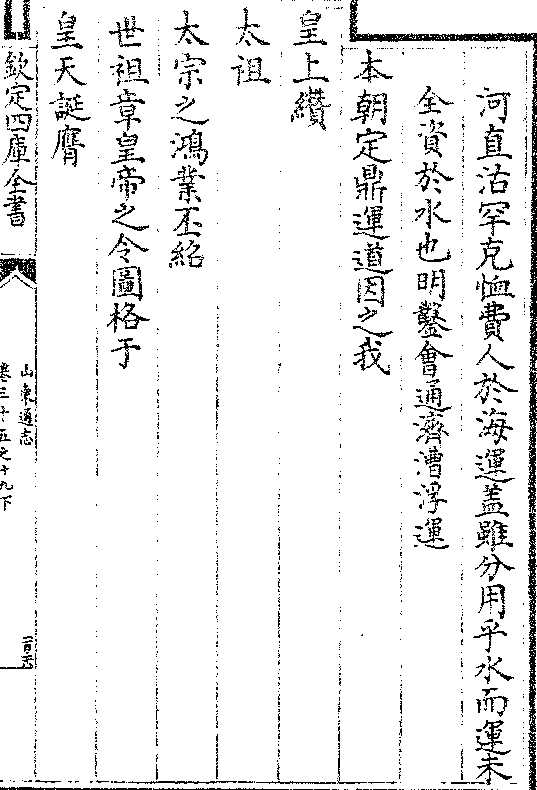 河直沽罕克恤費人於海運葢雖分用乎水而運未
全資於水也明鑿會通濟漕浮運
本朝定鼎運道因之我
皇上纘
太祖
太宗之鴻業丕紹
世祖章皇帝之令圖格于
皇天誕膺
欽定四庫全書
山東通志
卷三十五之十九下